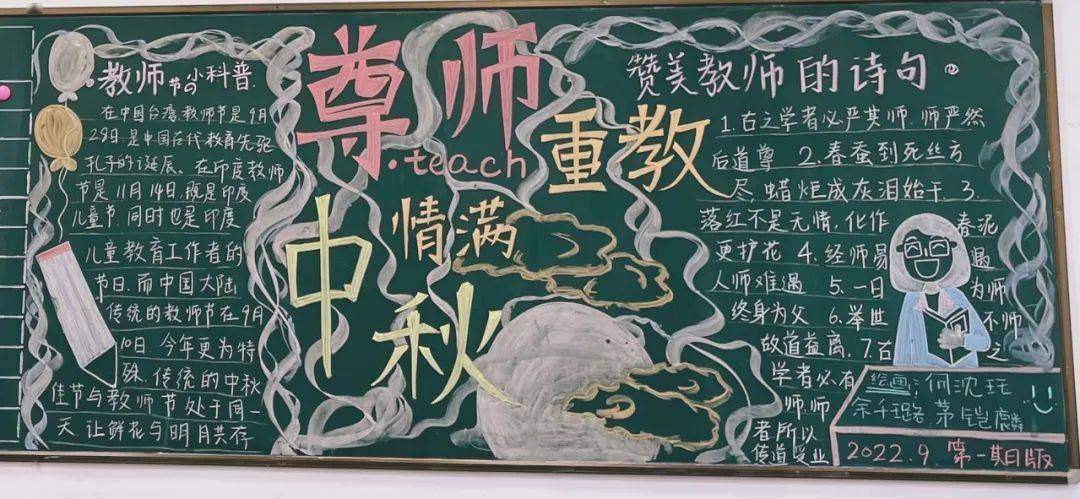 教师节的小科普
在中国台湾,教师节是9月
28日,是中国古代教育先驱
孔子的诞辰。在印度教师
节是11月14日,既是印度
儿童节,同时也是印度
儿童教育工作者的
节日.而中国大陆
传统的教师节在9月
10日.今年更为特
殊.传统的中秋
佳节与教师节处于同一
天.让鲜花与明月共存
尊师
·teach
重教
情满
中秋
赞美教师的诗句
1.古之学者必严其师.师严然
后道尊 2.春蚕到死丝方
尽,蜡炬成灰泪始干.3.
落红不是无情,化作春泥
更护花 4.经师易遇
人师难遇 5.一日为师
终身为父 6.举世不师
故道益离.7.古之
学者必有
师.师
者所以
传道受业
绘画:何沈玨
余千璐 茅铠麟
2022.9.第一期日版